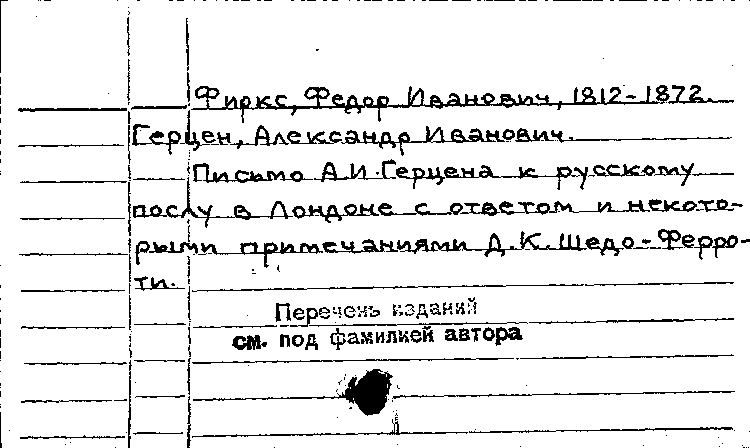 Фиркс, Федор Иванович, 1812-1872.
Герцен, Александр Иванович.
Письмо А.И.Герцена к русскому
послу в Лондоне с ответом и некото-
рыми примечаниями Д.К.Шедо-Ферро-
ти.
Перечень изданий
см. под фамилией автора